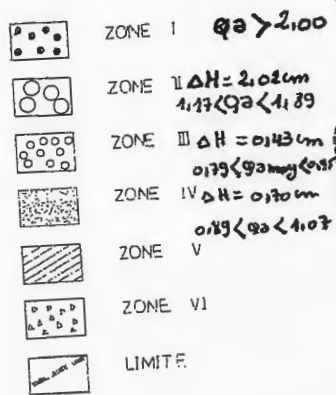 ZONE I qa > 2,00
ZONE II ΔH = 2,02 cm
1,17 < qa < 1,89
ZONE III ΔH = 0,43 cm
0,79 < qa moy < 0,95
ZONE IV ΔH = 0,70 cm
0,89 < qa < 1,07
ZONE V
ZONE VI
LIMITE